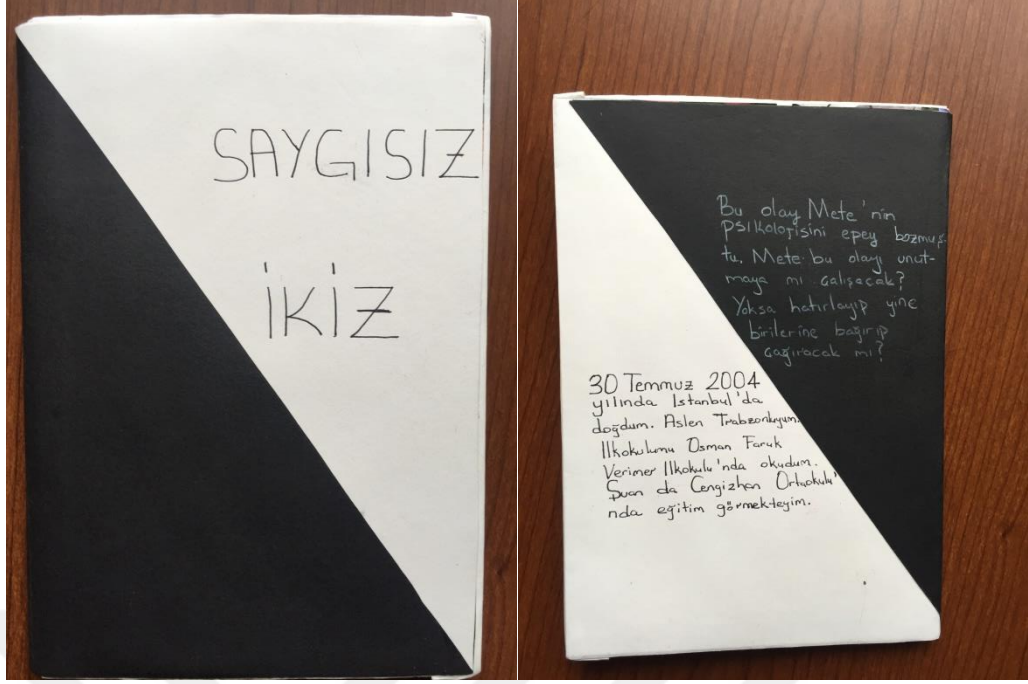 SAYGISIZ
İKİZ
Bu olay Mete'nin
psikolojisini epey bozmuş-
tu. Mete bu olayı unut-
maya mı çalışacak?
Yoksa hatırlayıp yine
birilerine bağırıp
çağıracak mı?
30 Temmuz 2004
yılında İstanbul'da
doğdum. Aslen Trabzonluyum.
İlkokulumu Osman Faruk
Verimer İlkokulu'nda okudum.
Şuan da Cengizhan Ortaokulu'
nda eğitim görmekteyim.